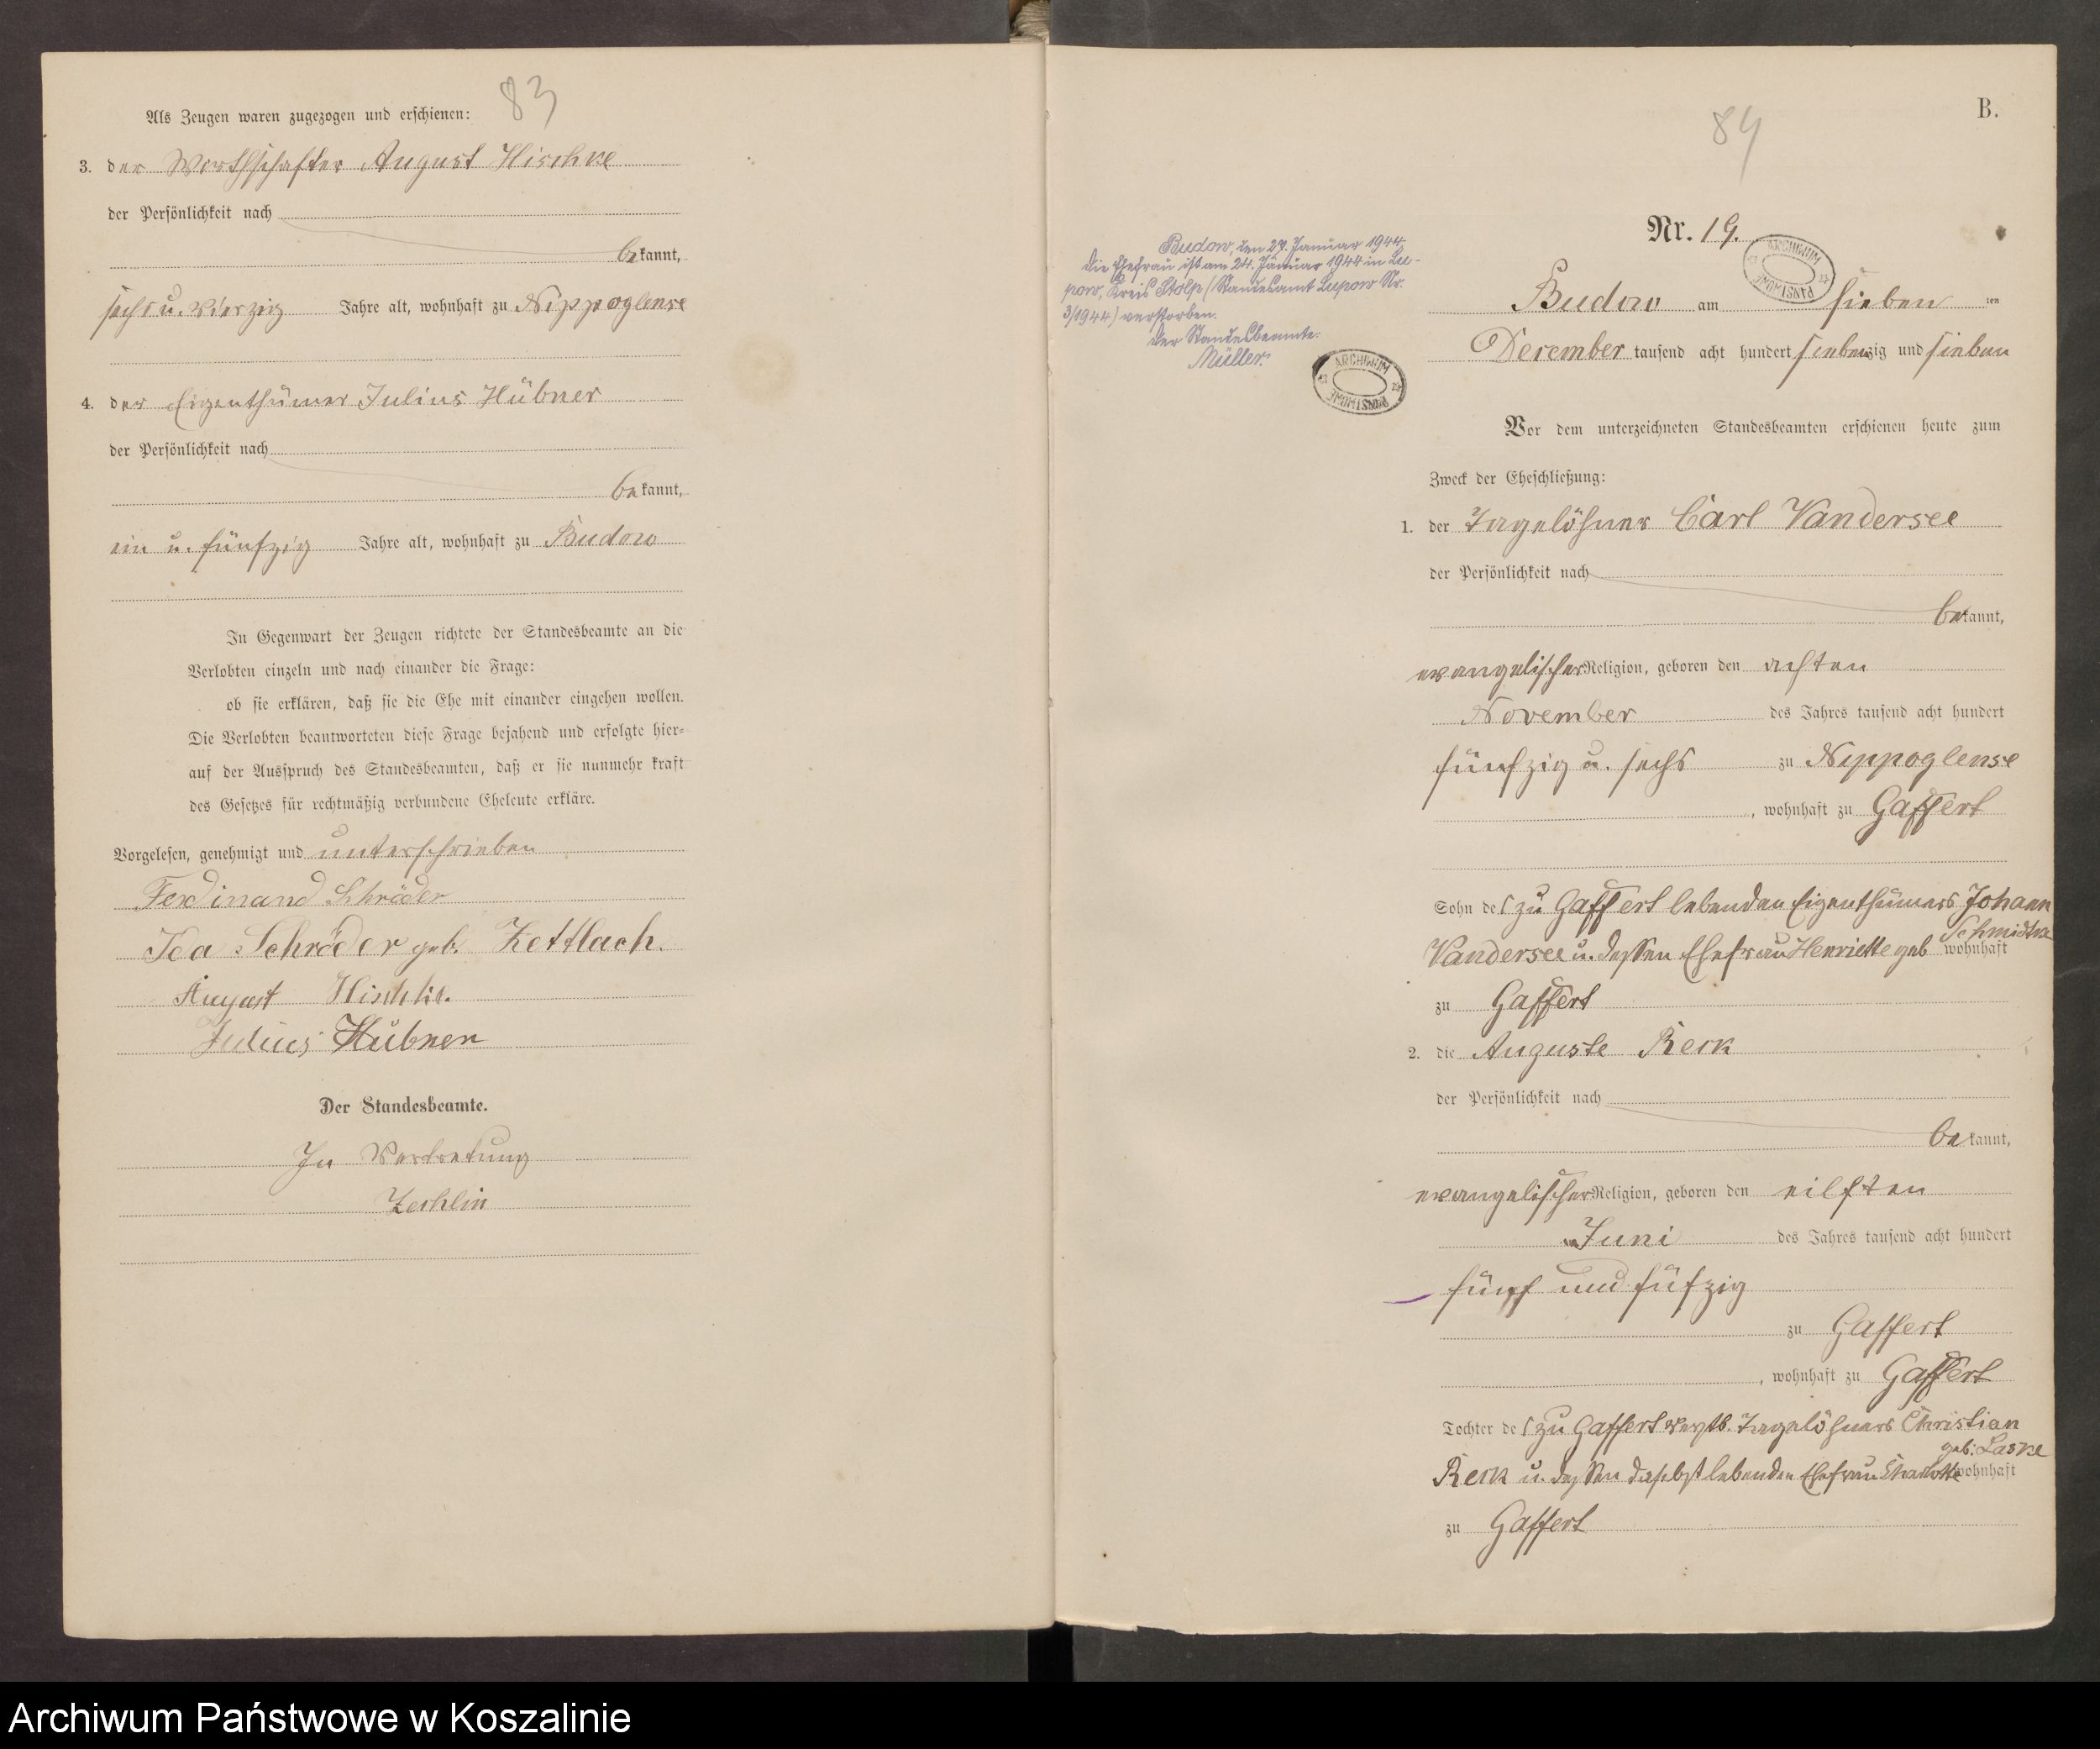 83
Als Zeugen waren zugezogen und erschienen:
3. der Wirthschafter August Hischke
der Persönlichkeit nach
bekannt,
sechs u. vierzig Jahre alt, wohnhaft zu Nippoglense
4. der Eigenthümer Julius Hübner
der Persönlichkeit nach
bekannt,
ein u. fünfzig Jahre alt, wohnhaft zu Budow
In Gegenwart der Zeugen richtete der Standesbeamte an die
Verlobten einzeln und nach einander die Frage:
ob sie erklären, daß sie die Ehe mit einander eingehen wollen.
Die Verlobten beantworteten diese Frage bejahend und erfolgte hier-
auf der Ausspruch des Standesbeamten, daß er sie nunmehr kraft
des Gesetzes für rechtmäßig verbundene Eheleute erkläre.
Vorgelesen, genehmigt und unterschrieben
Ferdinand Schröder
Ida Schröder geb. Zettlach.
August Hischke.
Julius Hübner
Der Standesbeamte.
In Vertretung
Zechlin
84
B.
Nr. 19.
ARCHIWUM PAŃSTWOWE
Budow am sieben ten
December tausend acht hundert siebenzig und sieben
Budow, den 29. Januar 1944
Die Ehefrau ist am 24. Januar 1944 in Lu-
pow, Kreis Stolp (Standesamt Lupow Nr.
3/1944) verstorben.
Der Standesbeamte.
Müller.
ARCHIWUM PAŃSTWOWE
Vor dem unterzeichneten Standesbeamten erschienen heute zum
Zweck der Eheschließung:
1. der Tagelöhner Carl Vandersee
der Persönlichkeit nach
bekannt,
evangelischer Religion, geboren den achten
November des Jahres tausend acht hundert
fünfzig u. sechs zu Nippoglense
, wohnhaft zu Gaffert
Sohn des zu Gaffert lebenden Eigenthümers Johann
Vandersee u. dessen Ehefrau Henriette geb Schmidtke wohnhaft
zu Gaffert
2. die Auguste Reck
der Persönlichkeit nach
bekannt,
evangelischer Religion, geboren den eilften
Juni des Jahres tausend acht hundert
fünf und füfzig
zu Gaffert
, wohnhaft zu Gaffert
Tochter des zu Gaffert verstb. Tagelöhners Christian
Reck u. dessen daselbst lebenden Ehefrau Charlotte geb. Laske wohnhaft
zu Gaffert
Archiwum Państwowe w Koszalinie